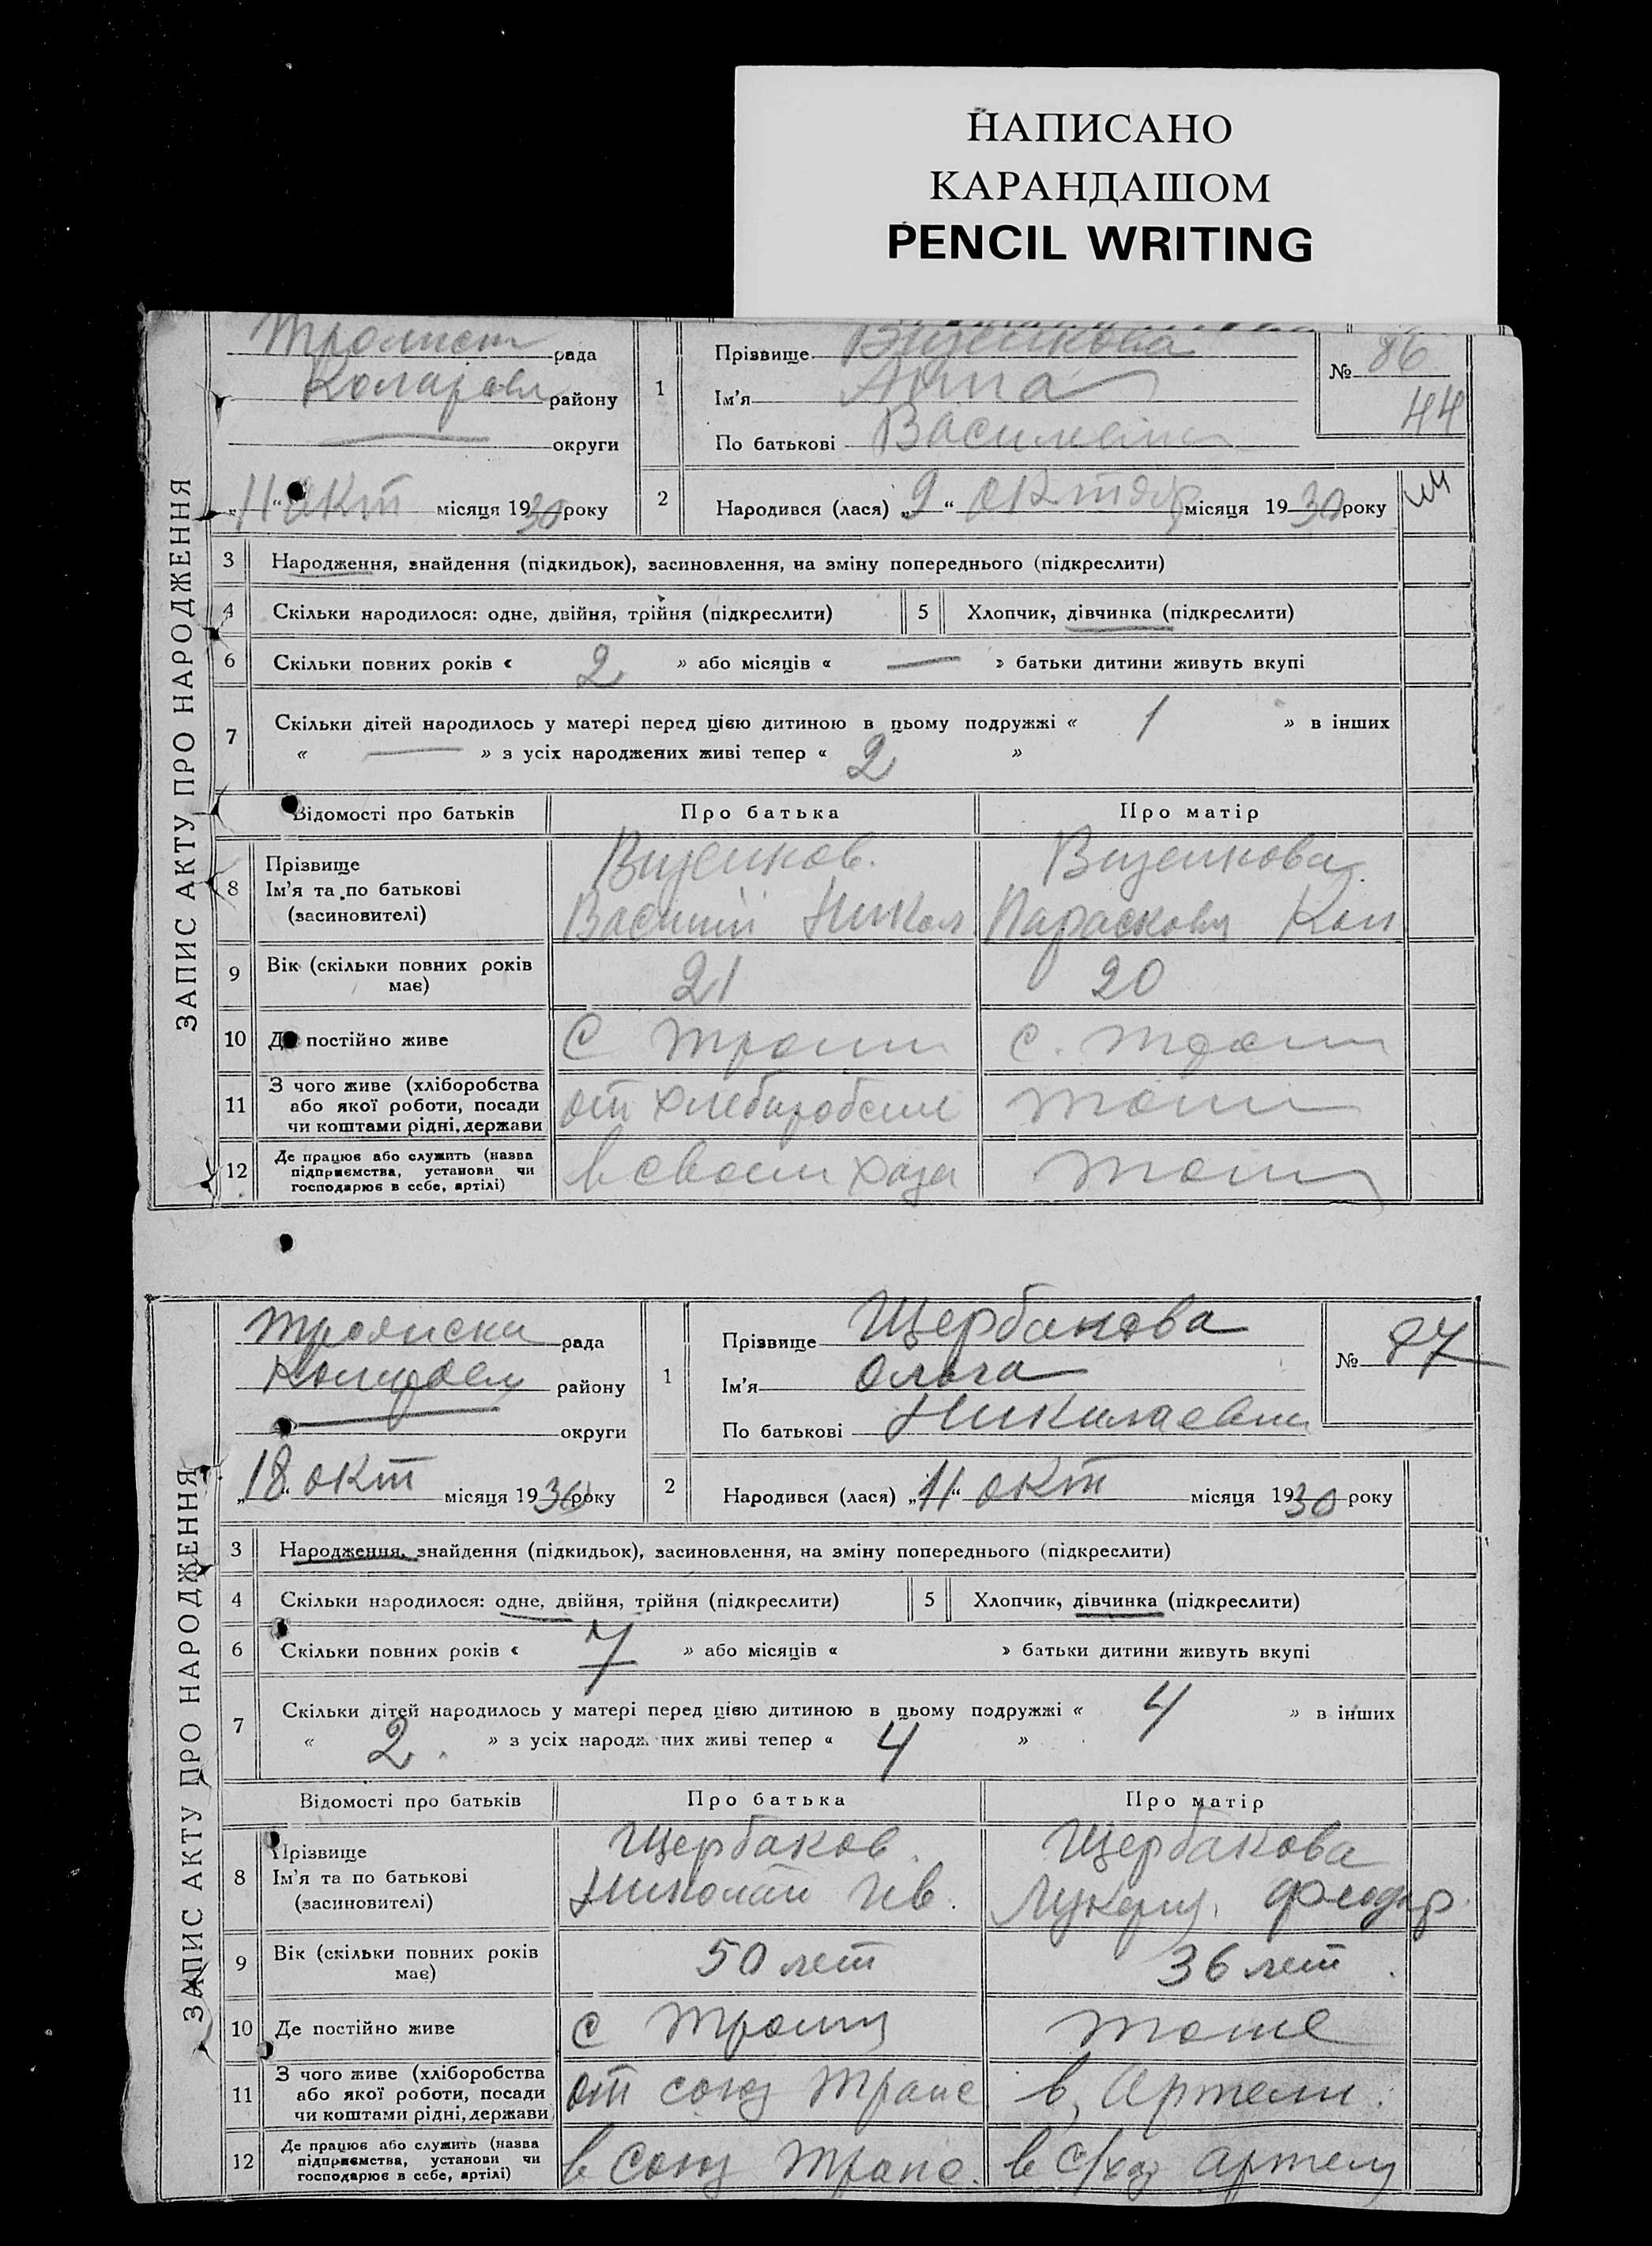 НАПИСАНО
КАРАНДАШОМ
PENCIL WRITING
ЗАПИС АКТУ ПРО НАРОДЖЕННЯ
рада
району
округи
„11“ окт місяця 1930 року
1
Прізвище
Ім'я Анна
По батькові
№ 86
44
2
Народився (лася) „9“ октябр місяця 1930 року
3 Народження, знайдення (підкидьок), засиновлення, на зміну попереднього (підкреслити)
4 Скільки народилося: одне, двійня, трійня (підкреслити)
5 Хлопчик, дівчинка (підкреслити)
6 Скільки повних років « 2 » або місяців « — » батьки дитини живуть вкупі
7 Скільки дітей народилось у матері перед цією дитиною в цьому подружжі « 1 » в інших
« — » з усіх народжених живі тепер « 2 »
Відомості про батьків Про батька Про матір
8 Прізвище
Ім'я та по батькові
(засиновителі)
Василий Никол
Парасковя
9 Вік (скільки повних років має) 21 20
10 Де постійно живе С с.
11 З чого живе (хліборобства
або якої роботи, посади
чи коштами рідні, держави
от
12 Де працює або служить (назва
підприємства, установи чи
господарює в себе, артілі)
в своем хозя
ЗАПИС АКТУ ПРО НАРОДЖЕННЯ
рада
району
округи
„18“ окт місяця 1930 року
1
Прізвище Щербакова
Ім'я Ольга
По батькові Николаевна
№ 87
2
Народився (лася) „11“ окт місяця 1930 року
3 Народження, знайдення (підкидьок), засиновлення, на зміну попереднього (підкреслити)
4 Скільки народилося: одне, двійня, трійня (підкреслити)
5 Хлопчик, дівчинка (підкреслити)
6 Скільки повних років « 7 » або місяців « » батьки дитини живуть вкупі
7 Скільки дітей народилось у матері перед цією дитиною в цьому подружжі « 4 » в інших
« 2. » з усіх народж них живі тепер « 4 »
Відомості про батьків Про батька Про матір
8 Прізвище
Ім'я та по батькові
(засиновителі)
Щербаков
Николай Ив.
Щербакова
9 Вік (скільки повних років має) 50 лет 36 лет
10 Де постійно живе с тоже
11 З чого живе (хліборобства
або якої роботи, посади
чи коштами рідні, держави
от союз Транс
в Артели.
12 Де працює або служить (назва
підприємства, установи чи
господарює в себе, артілі)
в союз Транс.
в с/хоз артели